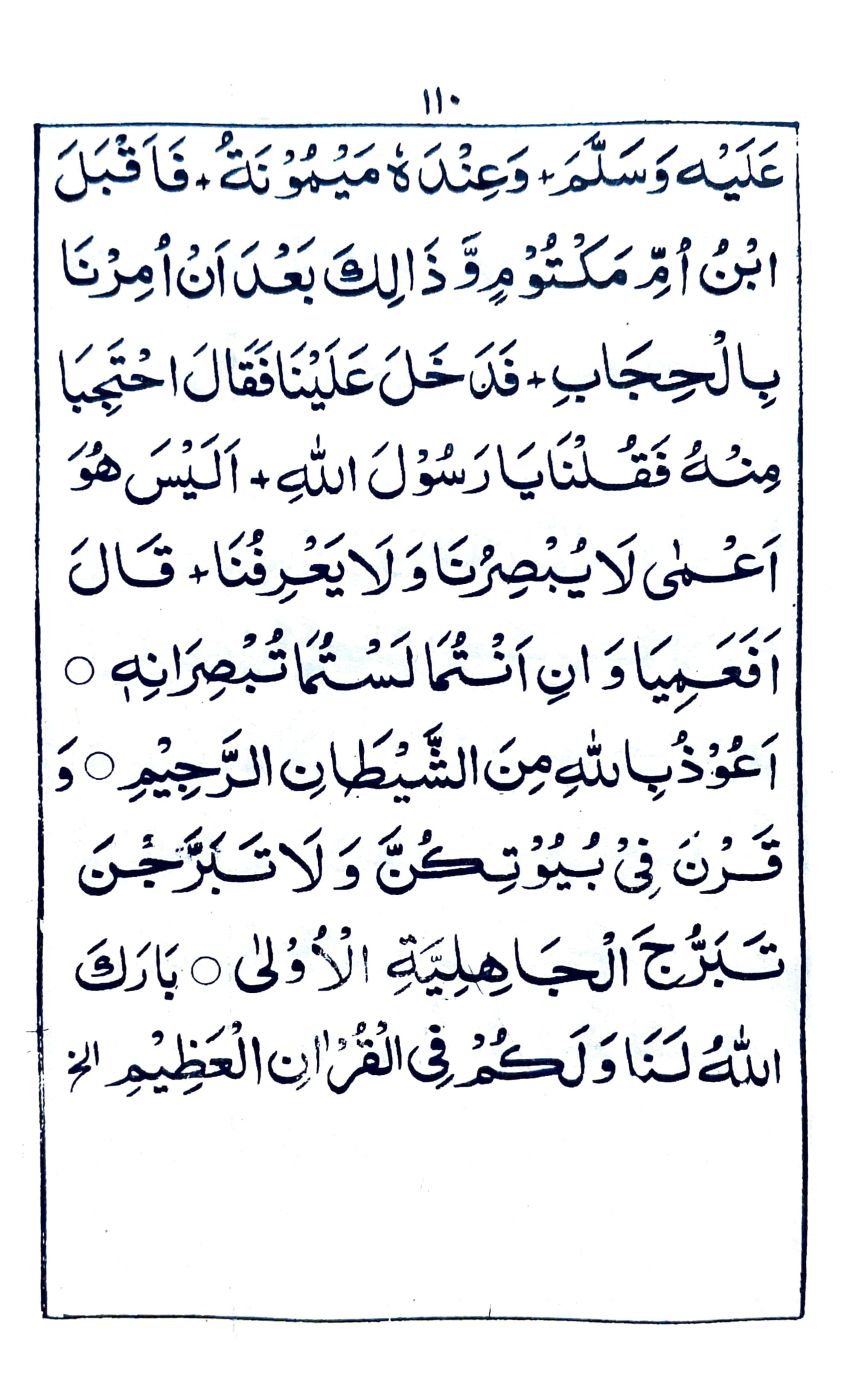 ١١٠
عَلَيْهِ وَسَلَّمَ + وَعِنْدَهٗ مَيْمُوْنَةُ + فَاَقْبَلَ
ابْنُ اُمِّ مَكْتُوْمٍ وَّ ذَالِكَ بَعْدَ اَنْ اُمِرْنَا
بِالْحِجَابِ + فَدَخَلَ عَلَيْنَا فَقَالَ احْتَجِبَا
مِنْهُ فَقُلْنَا يَا رَسُوْلَ اللّٰهِ + اَلَيْسَ هُوَ
اَعْمٰى لَا يُبْصِرُنَا وَ لَا يَعْرِفُنَا + قَالَ
اَفَعَمِيَا وَ انِ اَنْتُمَا لَسْتُمَا تُبْصِرَانِهٖ ○
اَعُوْذُ بِاللّٰهِ مِنَ الشَّيْطَانِ الرَّجِيْمِ ○ وَ
قَرْنَ فِيْ بُيُوْتِكُنَّ وَ لَا تَبَرَّجْنَ
تَبَرُّجَ الْجَاهِلِيَّةِ الْاُوْلٰى ○ بَارَكَ
اللّٰهُ لَنَا وَ لَكُمْ فِى الْقُرْاٰنِ الْعَظِيْمِ الخ